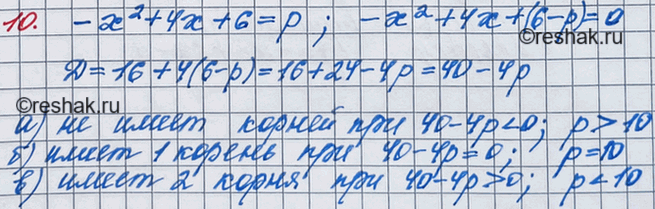 10. -x²+4x+6=p; -x²+4x+(6-p)=0
©reshak.ru
D=16+4(6-p)=16+24-4p=40-4p
а) не имеет корней при 40-4p<0; p>10
б) имеет 1 корень при 40-4p=0; p=10
в) имеет 2 корня при 40-4p>0; p<10
©reshak.ru
©reshak.ru